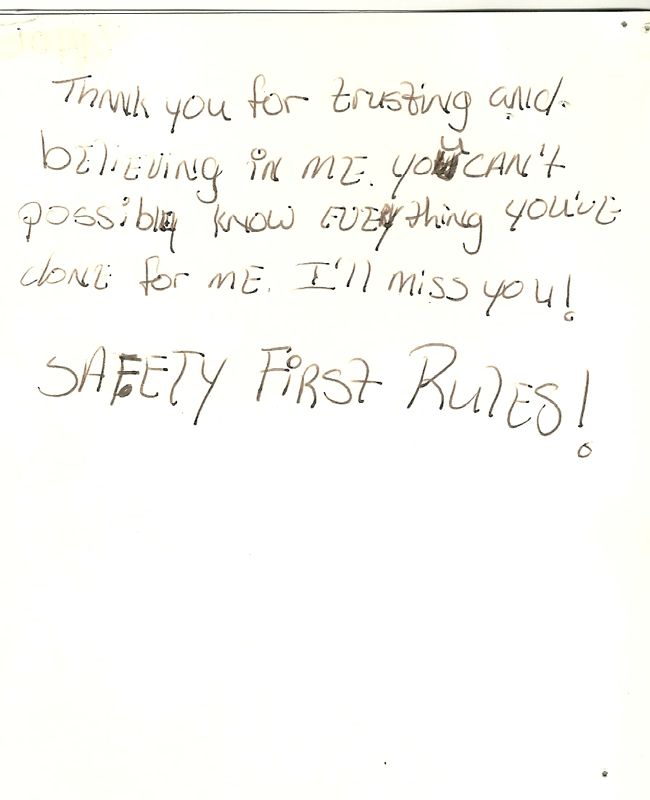 Thank you for trusting and
believing in me. you can't
possibly know everything you've
done for me. I'll miss you!
SAFETY FIRST RULES!